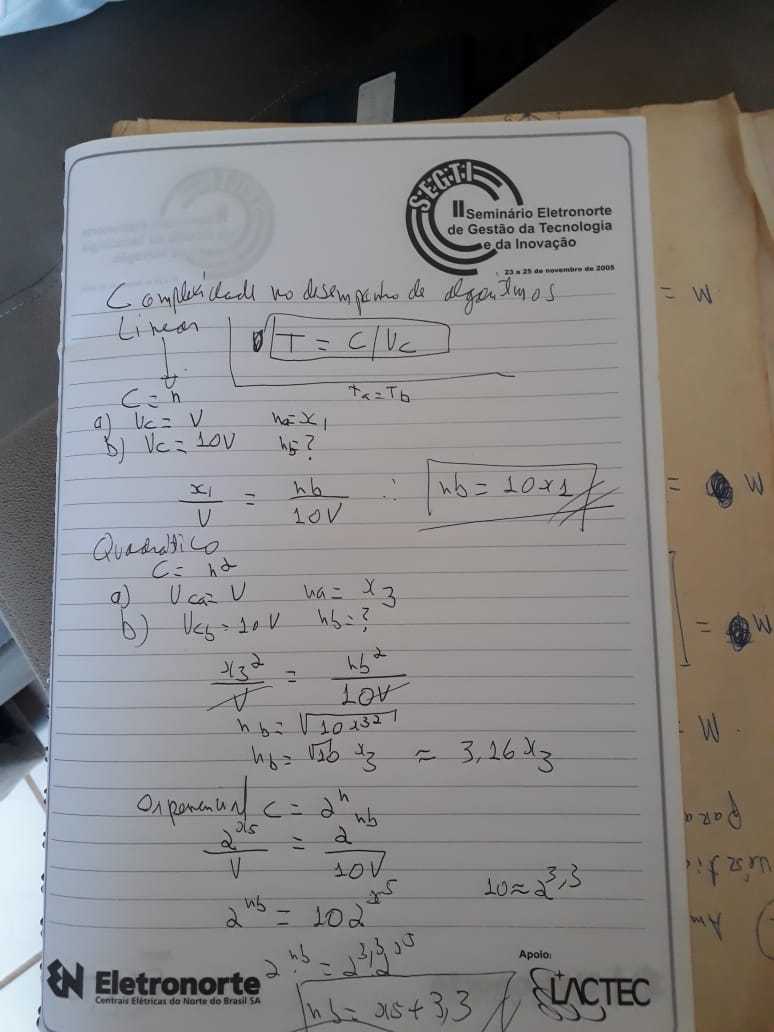 S.E.G.T.I
II Seminário Eletronorte
de Gestão da Tecnologia
e da Inovação
23 a 25 de novembro de 2005
Complexidade no desempenho de algoritmos
Linear
T = C/Vc
C = n
Ta = Tb
a) Vc = V na = x1
b) Vc = 10V nb = ?
x1/V = nb/10V ∴ nb = 10x1
Quadrático
C = n²
a) Vca = V na = x3
b) Vcb = 10V nb = ?
x3²/V = nb²/10V
nb = √10x3²
nb = √10 x3 ≈ 3,16 x3
Exponencial C = 2^n
2^x5/V = 2^nb/10V
10 ≈ 2^3,3
2^nb = 10 2^x5
2^nb = 2^3,3 2^x5
nb = x5 + 3,3
Eletronorte
Centrais Elétricas do Norte do Brasil SA
Apoio:
LACTEC
M =
M =
M =
M =
Para
Am